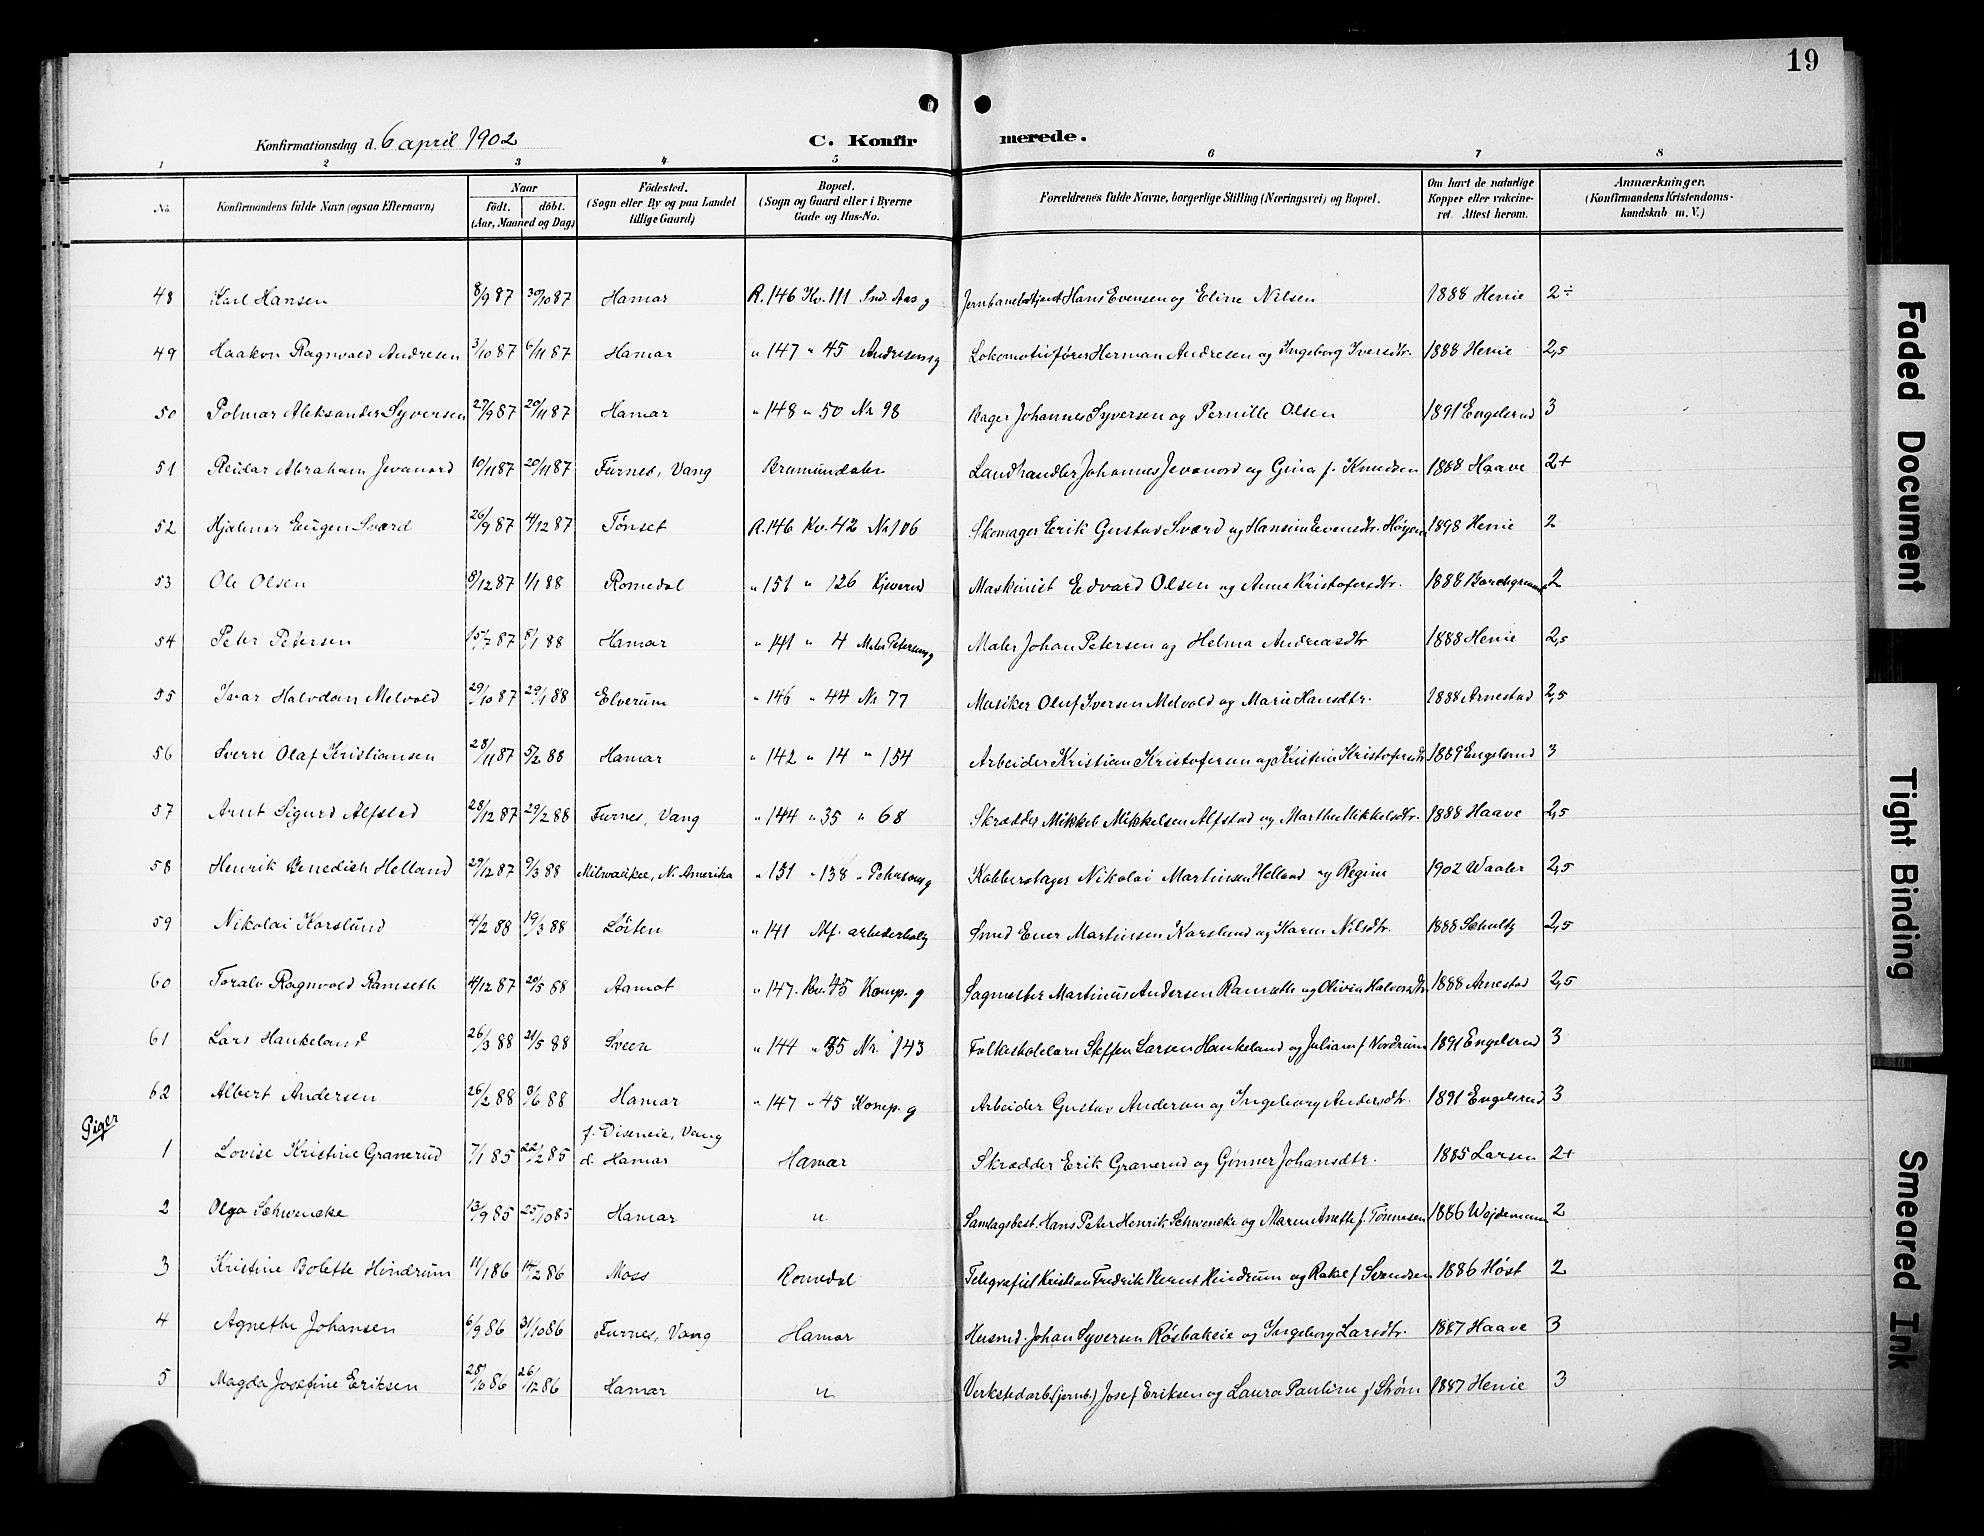 19
Konfirmationsdag d. 6 april 1902 C. Konfir merede.
1 2 3 4 5 6 7 8
No. Konfirmandens fulde Navn (ogsaa Efternavn) Naar født. døbt. (Aar, Maaned og Dag) Fødested. (Sogn eller By og paa Landet tillige Gaard) Bopæl. (Sogn og Gaard eller i Byerne Gade og Hus-No. Forældrenes fulde Navne, borgerlige Stilling (Næringsvei) og Bopæl. Om havt de naturlige Kopper eller vakcineret. Attest herom. Anmærkninger. (Konfirmandens Kristendomskundskab m. V.)
48 Karl Hansen 8/9 87 30/10 87 Hamar R. 146 Kv. 111 Snd. Aas g Jernbanebetjent Hans Evensen og Eline Nilsen 1888 Henie 2÷
49 Haakon Ragnvald Andresen 3/10 87 6/11 87 Hamar " 147 " 45 Andresens g Lokomotivfører Herman Andresen og Ingeborg Iversdtr. 1888 Henie 2,5
50 Polmar Aleksander Syversen 27/9 87 20/11 87 Hamar " 148 " 50 Nr 98 Bager Johannes Syversen og Pernille Olsen 1891 Engelsrud 3
51 Reidar Abraham Jevanord 10/11 87 20/11 87 Furnes, Vang Brumunddalen Landhandler Johannes Jevanord og Gina f. Knudsen 1888 Haave 2+
52 Hjalmar Eugen Sværd 26/9 87 4/12 87 Tönset R. 146 Kv. 42 Nr 106 Skomager Erik Gustav Sværd og Hansine Evensdtr. 1898 Henie 2
53 Ole Olsen 8/12 87 1/1 88 Romedal " 151 " 126 Kjeverud Maskinist Edvard Olsen og Anne Kristofersdtr. 1888 Borchgrevink 2
54 Peter Petersen 15/7 87 8/1 88 Hamar " 141 " 4 Maler Petersens g Maler Johan Petersen og Helma Andreasdtr 1888 Henie 2,5
55 Ivar Halvdan Melvold 29/10 87 29/1 88 Elverum " 146 " 44 Nr 77 Musiker Oluf Iversen Melvold og Marie Hansdtr. 1888 Arnestad 2,5
56 Sverre Olaf Kristiansen 28/11 87 5/2 88 Hamar " 142 " 14 " 154 Arbeider Kristian Kristofersen og Kristine Kristofersdtr 1889 Engelsrud 3
57 Arnt Sigurd Alfstad 28/12 87 29/2 88 Furnes, Vang " 144 " 35 " 68 Skrædder Mikkel Mikkelsen Alfstad og Marthe Mikkelsdtr. 1888 Haave 2,5
58 Henrik Benedick Helland 29/12 87 9/3 88 Milwaukee, N. Amerika " 151 " 138 " Petersens g Kobberslager Nikolai Martinsen Helland og Regine 1902 Waaler 2,5
59 Nikolai Korslund 4/2 88 19/3 88 Löiten " 141 arbeiderbolig Smed Ener Martinsen Korslund og Karen Nilsdtr. 1888 Schultz 2,5
60 Toralv Ragnvald Ramseth 4/12 87 20/5 88 Aamot " 147. Kv. 45 Komp. g Sagmester Martinus Andersen Ramseth og Olivia Halvorsdtr 1888 Arnestad 2,5
61 Lars Haukeland 26/3 88 21/5 88 Sveen " 144 " 35 Nr. 143 Folkeskolelærer Steffen Larsen Haukeland og Juliane f Nordrum 1891 Engelsrud 3
62 Albert Andersen 26/2 88 3/6 88 Hamar " 147 " 45 Komp. g Arbeider Gustav Andersen og Ingeborg Andersdtr. 1891 Engelsrud 3
Piger
1 Lovise Kristine Granerud 7/1 85 22/2 85 f. Diseneie, Vang d. Hamar Hamar Skrædder Erik Granerud og Gunner Johansdtr. 1885 Larsen 2+
2 Olga Schwencke 13/9 85 25/10 85 Hamar " Samlagsbest. Hans Peter Henrik Schwencke og Maren Anette f. Tönnesen 1886 Wejdemann 2
3 Kristine Bolette Hindrum 11/1 86 14/2 86 Moss Romedal Telegrafist Kristian Fredrik Bernt Hindrum og Rakel f Svendsen 1886 Höst 2
4 Agnethe Johansen 6/9 86 31/10 86 Furnes, Vang Hamar Husmd. Johan Syversen Rösbakeie og Ingeborg Larsdtr. 1887 Haave 3
5 Magda Josefine Eriksen 28/10 86 26/12 86 Hamar " Verkstedarb (jernb.) Josef Eriksen og Laura Pauline f Ström 1887 Henie 3
Faded Document
Tight Binding
Smeared Ink